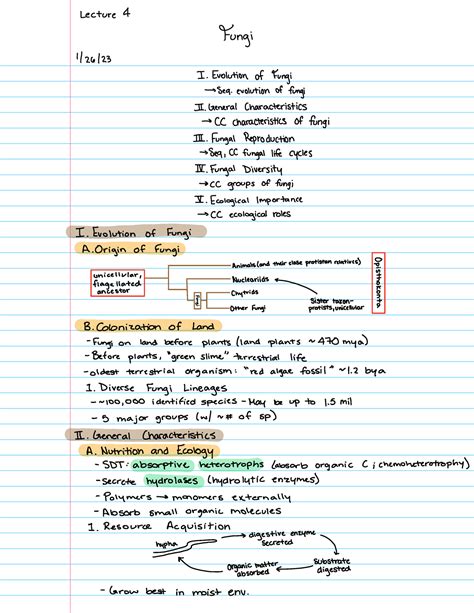 Lecture 4
Fungi
1/26/23
I. Evolution of Fungi
→Seq. evolution of fungi
II. General Characteristics
→ CC characteristics of fungi
III. Fungal Reproduction
→Seq, CC fungal life cycles
IV. Fungal Diversity
→CC groups of fungi
V. Ecological Importance
→ CC ecological roles
I. Evolution of Fungi
A. Origin of Fungi
unicellular, flagellated ancestor
Animals (and their close protistan relatives)
Nucleariids
Chytrids
Other Fungi
Fungi
Sister taxon-
protists, unicellular
Opisthokonta
B. Colonization of Land
-Fungi on land before plants (land plants ~470 mya)
-Before plants, "green slime" terrestrial life
-oldest terrestrial organism: "red algae fossil" ~1.2 bya
1. Diverse Fungi Lineages
-~100,000 identified species - May be up to 1.5 mil
- 5 major groups (w/ ~# of sp)
II. General Characteristics
A. Nutrition and Ecology
- SDT: absorptive heterotrophs (absorb organic C ; chemoheterotrophy)
-Secrete hydrolases (hydrolytic enzymes)
- Polymers → monomers externally
- Absorb small organic molecules
1. Resource Acquisition
hypha
digestive enzyme secreted
Substrate digested
Organic matter absorbed
- Grow best in moist env.